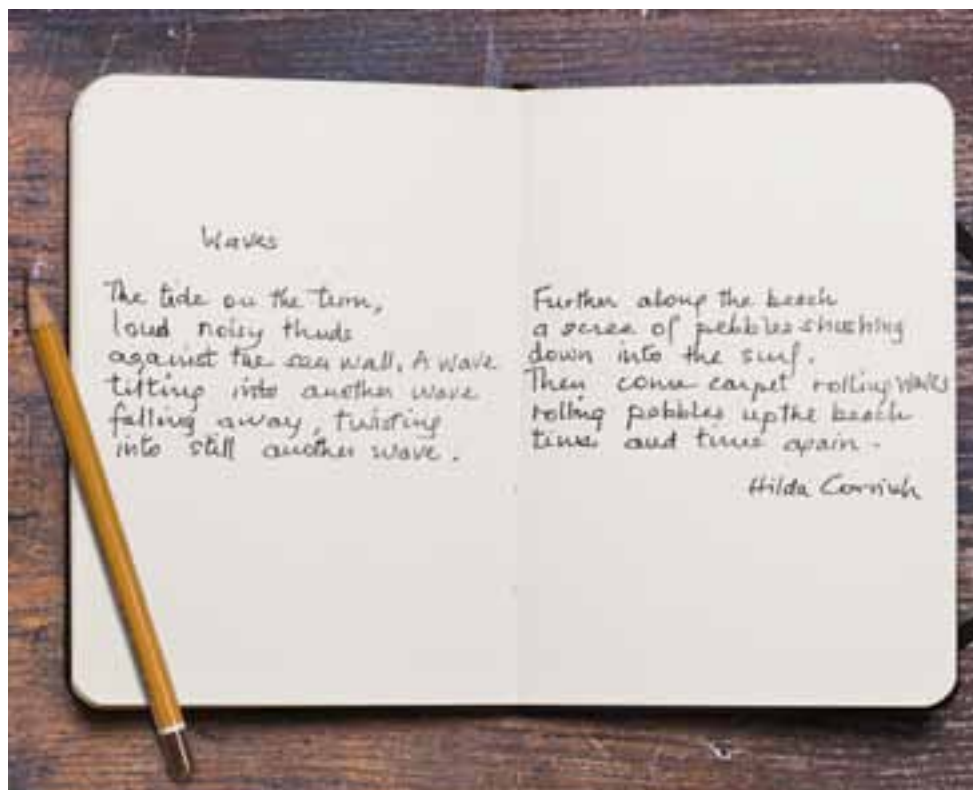 Waves
The tide on the turn,
loud noisy thuds
against the sea wall. A wave
tilting into another wave
falling away, twisting
into still another wave.
Further along the beach
a scree of pebbles shushing
down into the surf.
Then come carpet rolling waves
rolling pebbles up the beach
time and time again.
Hilda Cornish